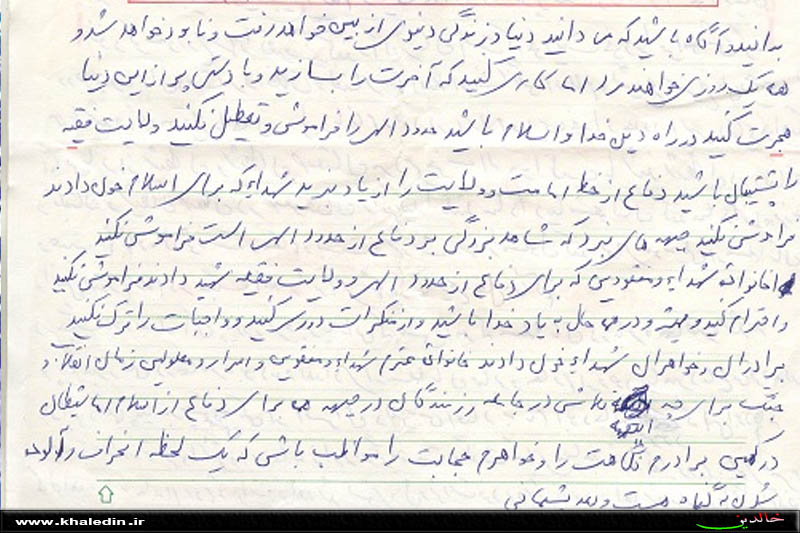 بدانید و آگاه باشید که می دانید دنیا و زندگی دنیوی از بین خواهد رفت و نابود خواهد شد و
همه یک روزی خواهند مرد اما کاری کنید که آخرت را بسازید و با دستی پر از این دنیا
هجرت کنید در راه دین خدا و اسلام باشید حدود الهی را فراموش و تعطیل نکنید ولایت فقیه
را پشتیبان باشید دفاع از خط امامت و ولایت را از یاد نبرید شهداء که برای اسلام خون دادند
فراموش نکنید جبهه های نبرد که شاهد بزرگی بر دفاع از حدود الهی است فراموش نکنید
خانواده شهداء و مفقودین که برای دفاع از حدود الهی و ولایت فقیه شهید دادند فراموش نکنید
و احترام کنید و همیشه و در همه حال به یاد خدا باشید و از منکرات دوری کنید و واجبات را ترک نکنید
برادران و خواهران شهداء خون دادند خانواده محترم شهداء و مفقودین و اسراء و معلولین زمان انقلاب و
جنگ برای چه تلاش در جامعه رزمندگان در جبهه ها برای دفاع از اسلام اما شیطان
در کمین برادرم نگاهت را و خواهرم حجابت را مواظب باشی که یک لحظه انحراف و آلوده
شدن به گناه هست و بعد پشیمانی
www.khaledin.ir
خالدین